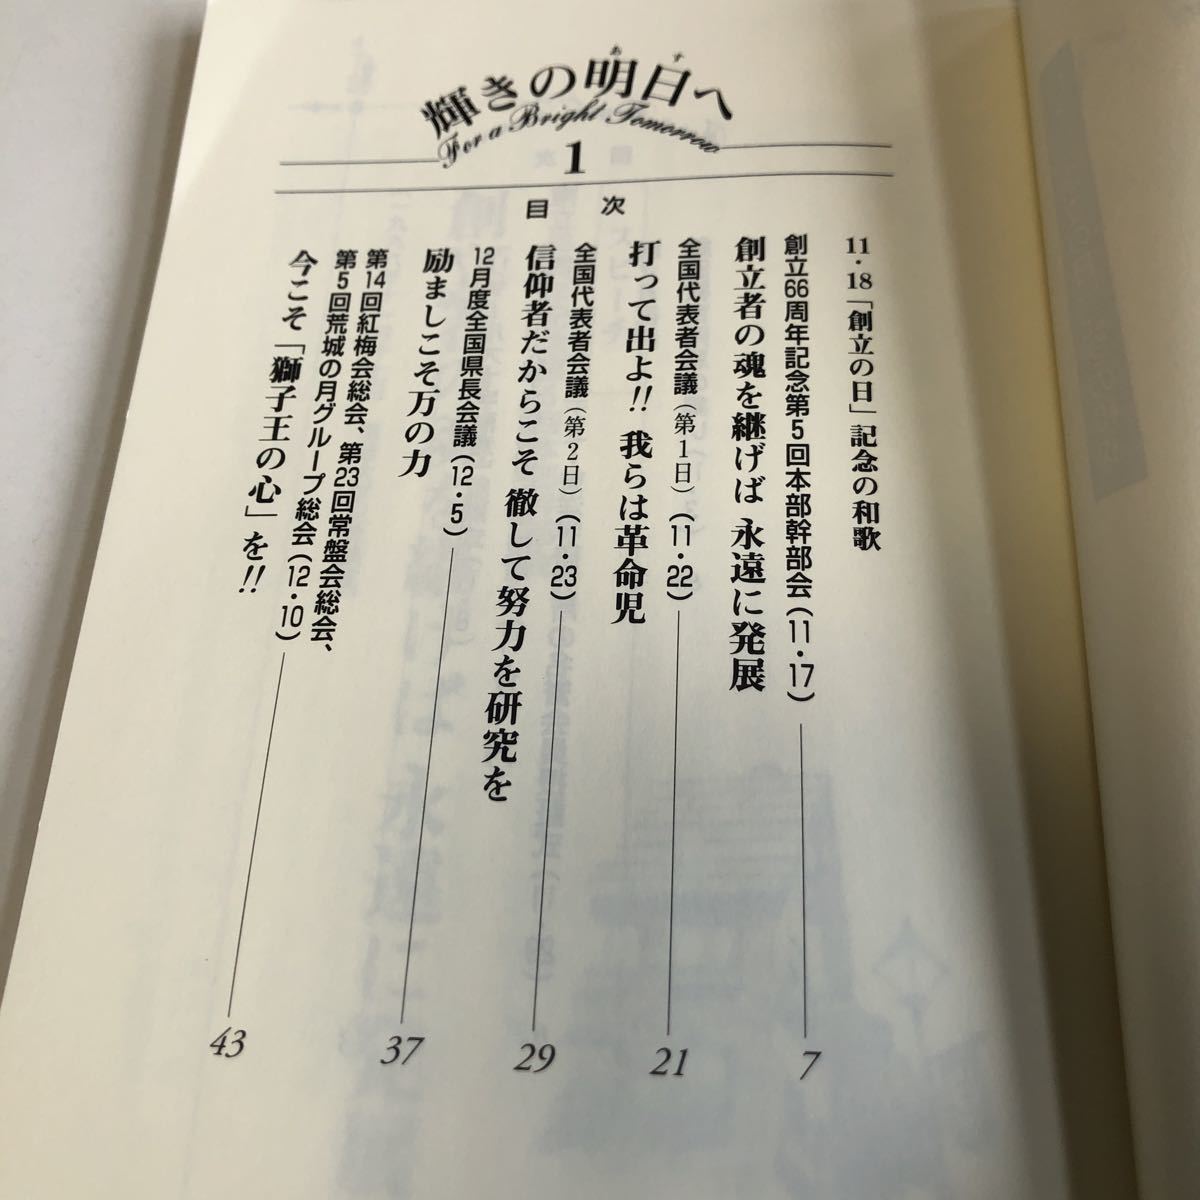 輝きの明日へ
あす
For a Bright Tomorrow
1
目次
11・18「創立の日」記念の和歌
創立66周年記念第5回本部幹部会(11・17)
創立者の魂を継げば 永遠に発展
7
全国代表者会議(第1日)(11・22)
打って出よ!! 我らは革命児
21
全国代表者会議(第2日)(11・23)
信仰者だからこそ 徹して努力を研究を
29
12月度全国県長会議(12・5)
励ましこそ万の力
37
第14回紅梅会総会、第23回常盤会総会、
第5回荒城の月グループ総会(12・10)
今こそ「獅子王の心」を!!
43